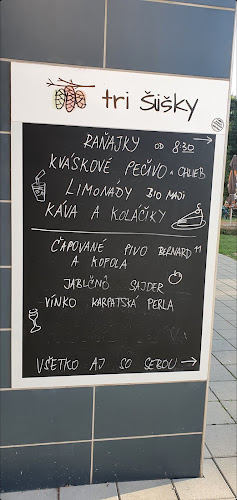 tri šišky
RAŇAJKY OD 8:30 →
KVÁSKOVÉ PEČIVO A CHLIEB
LIMONÁDY BIO MAJI
KÁVA A KOLÁČIKY
ČAPOVANÉ PIVO BERNARD 11
A KOFOLA
JABLČNÔ SAJDER
VÍNKO KARPATSKÁ PERLA
VŠETKO AJ SO SEBOU →